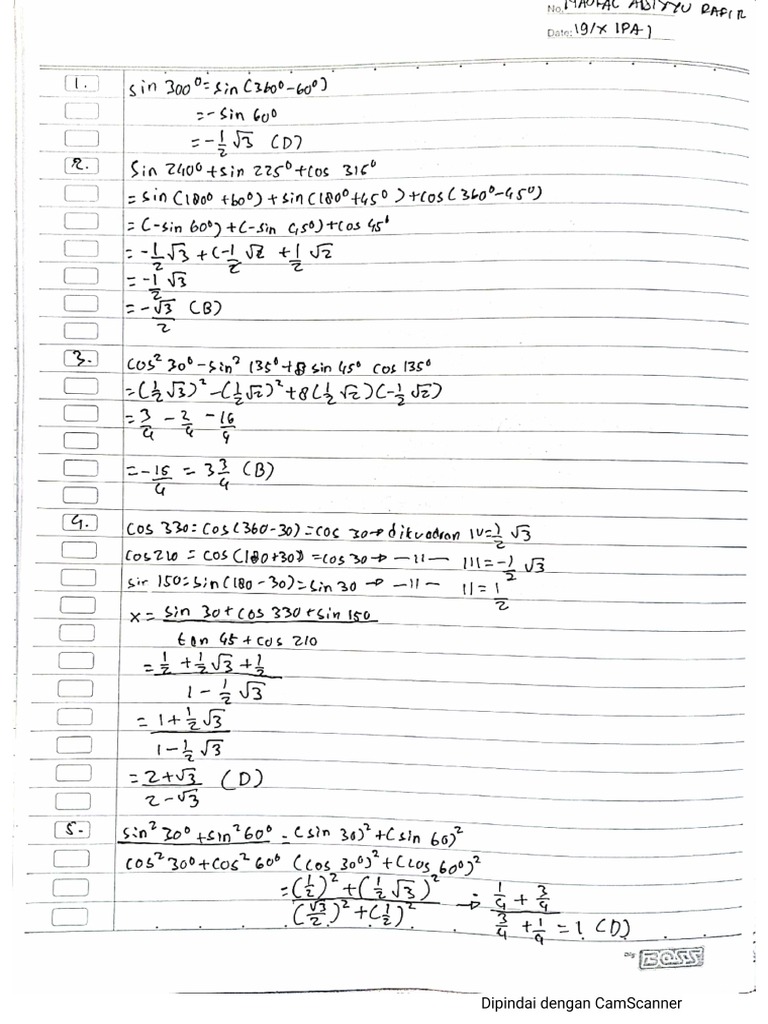 No. NAUFAL ABIYYU RAFIF
Date: 19/X IPA 1
1. sin 300° = sin (360° - 60°)
= - sin 60°
= -1/2 √3 (D)
2. Sin 240° + sin 225° + cos 315°
= sin (180° + 60°) + sin (180° + 45°) + cos (360° - 45°)
= (-sin 60°) + (-sin 45°) + cos 45°
= -1/2 √3 + (-1/2 √2 + 1/2 √2
= -1/2 √3
= -√3/2 (B)
3. cos² 30° - sin² 135° + 8 sin 45° cos 135°
= (1/2 √3)² - (1/2 √2)² + 8 (1/2 √2) (-1/2 √2)
= 3/4 - 2/4 - 16/4
= -15/4 = 3 3/4 (B)
4. cos 330 = cos (360 - 30) = cos 30 → dikuadran IV = 1/2 √3
cos 210 = cos (180 + 30) = cos 30 → -11- III = -1/2 √3
sin 150 = sin (180 - 30) = sin 30 → -11- II = 1/2
x = sin 30 + cos 330 + sin 150
tan 45 + cos 210
= 1/2 + 1/2 √3 + 1/2
1 - 1/2 √3
= 1 + 1/2 √3
1 - 1/2 √3
= 2 + √3 (D)
2 - √3
5. sin² 30° + sin² 60° = (sin 30)² + (sin 60)²
cos² 30° + cos² 60° (cos 30°)² + (cos 60°)²
= (1/2)² + (1/2 √3)² → 1/4 + 3/4
(√3/2)² + (1/2)² 3/4 + 1/4 = 1 (D)
BOSS
Dipindai dengan CamScanner